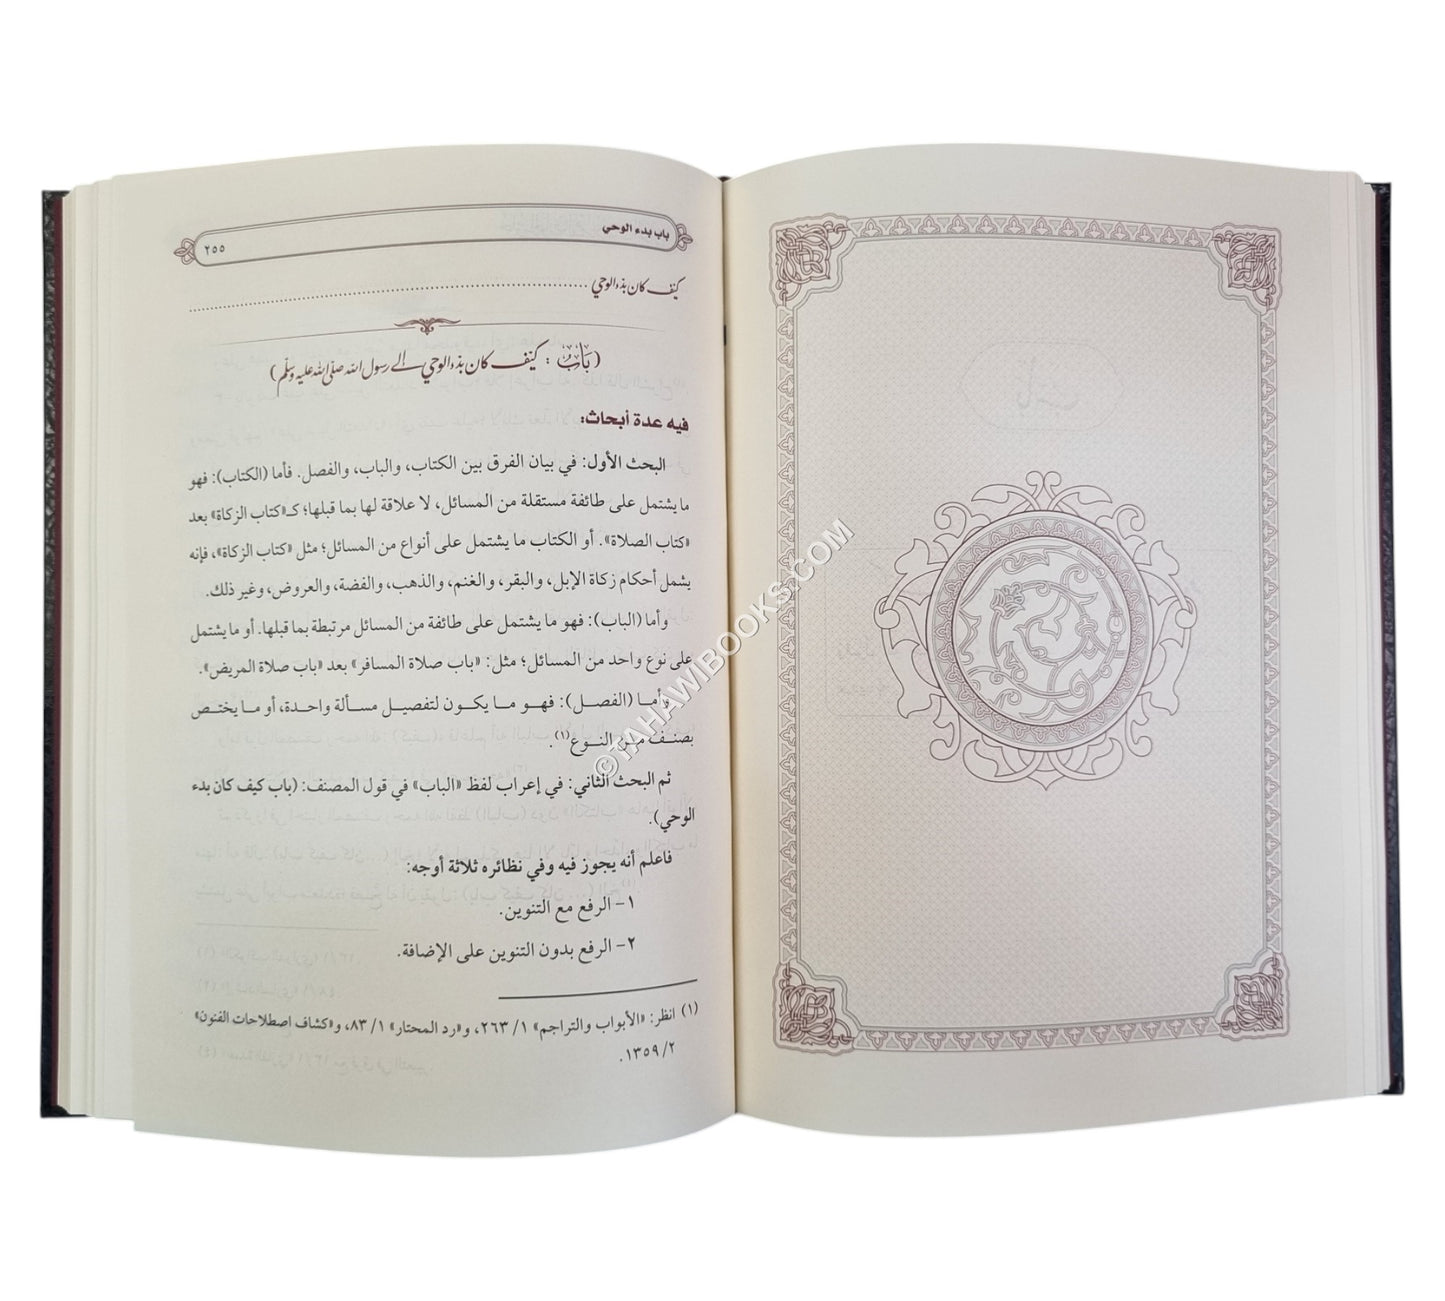 باب بدء الوحي ٢٥٥
كيف كان بدء الوحي ........................................
(باب : كيف كان بدء الوحي إلى رسول الله صلى الله عليه وسلم)
فيه عدة أبحاث:
البحث الأول: في بيان الفرق بين الكتاب، والباب، والفصل. فأما (الكتاب): فهو
ما يشتمل على طائفة مستقلة من المسائل، لا علاقة لها بما قبلها؛ كـ«كتاب الزكاة» بعد
«كتاب الصلاة». أو الكتاب ما يشتمل على أنواع من المسائل؛ مثل «كتاب الزكاة»، فإنه
يشمل أحكام زكاة الإبل، والبقر، والغنم، والذهب، والفضة، والعروض، وغير ذلك.
وأما (الباب): فهو ما يشتمل على طائفة من المسائل مرتبطة بما قبلها. أو ما يشتمل
على نوع واحد من المسائل؛ مثل: «باب صلاة المسافر» بعد «باب صلاة المريض».
وأما (الفصل): فهو ما يكون لتفصيل مسألة واحدة، أو ما يختص
بصنف من النوع(١).
ثم البحث الثاني: في إعراب لفظ «الباب» في قول المصنف: (باب كيف كان بدء
الوحي).
فاعلم أنه يجوز فيه وفي نظائره ثلاثة أوجه:
١- الرفع مع التنوين.
٢- الرفع بدون التنوين على الإضافة.
(١) انظر: «الأبواب والتراجم» ١/ ٢٦٣، و«رد المحتار» ١/ ٨٣، و«كشاف اصطلاحات الفنون»
٢/ ١٣٥٩.
©TAHAWIBOOKS.COM